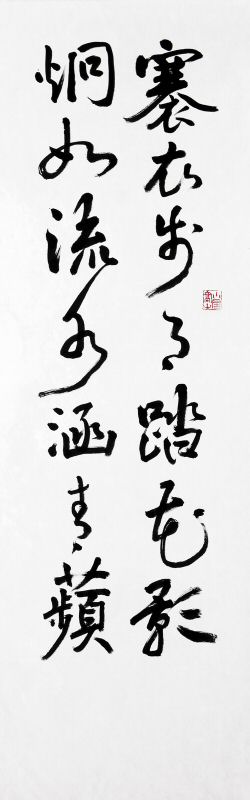 褰衣步月踏花影
炯如流水涵青蘋